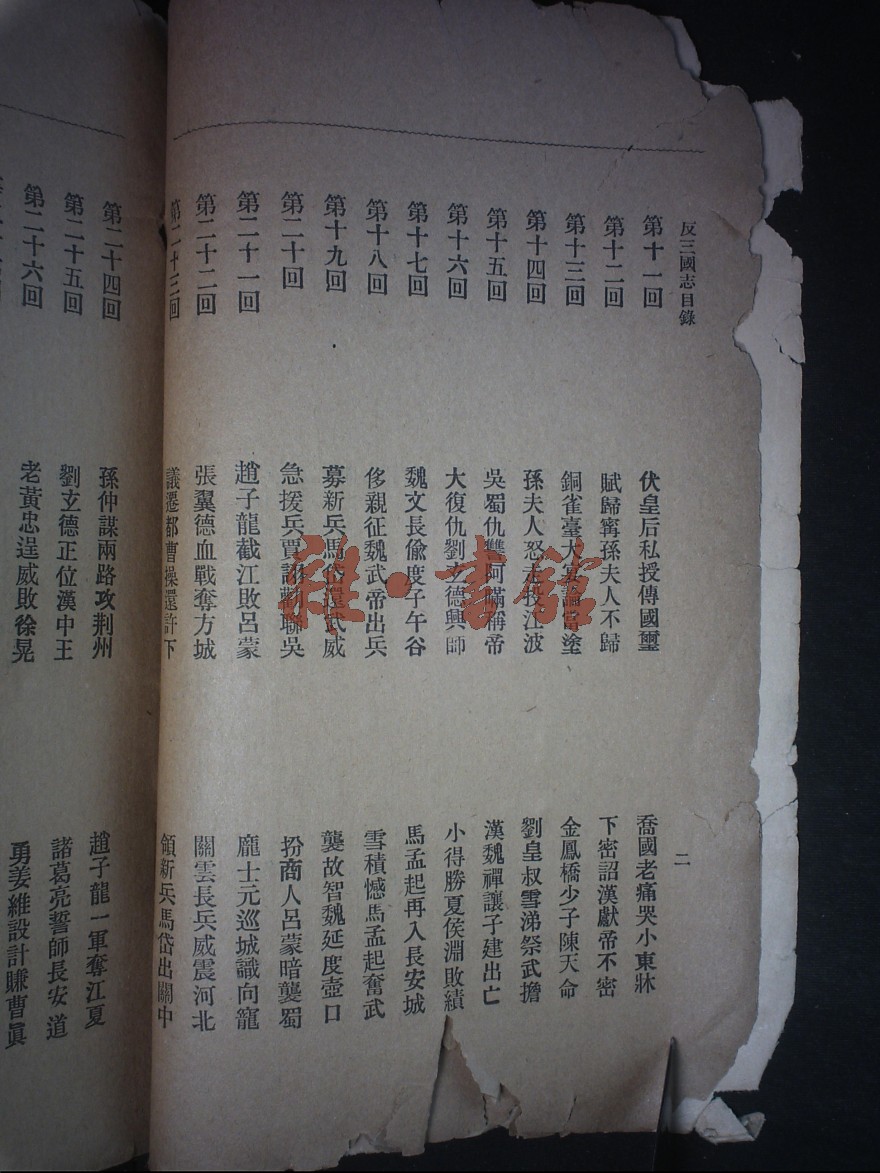 反三國志目錄
二
第十一回 伏皇后私授傳國璽 喬國老痛哭小東牀
第十二回 賦歸寗孫夫人不歸 下密詔漢獻帝不密
第十三回 銅雀臺大宴論當塗 金鳳橋少子陳天命
第十四回 孫夫人怒走投江波 劉皇叔雪涕祭武擔
第十五回 吳蜀仇讐阿瞞稱帝 漢魏禪讓子建出亡
第十六回 大復仇劉玄德興師 小得勝夏侯淵敗績
第十七回 魏文長偸度子午谷 馬孟起再入長安城
第十八回 侈親征魏武帝出兵 雪積憾馬孟起奮武
第十九回 募新兵馬岱還武威 襲故智魏延度壺口
第二十回 急援兵賈詡勸聯吳 扮商人呂蒙暗襲蜀
第二十一回 趙子龍截江敗呂蒙 龐士元巡城識向寵
第二十二回 張翼德血戰奪方城 關雲長兵威震河北
第二十三回 議遷都曹操還許下 領新兵馬岱出關中
第二十四回 孫仲謀兩路攻荆州 趙子龍一軍奪江夏
第二十五回 劉玄德正位漢中王 諸葛亮誓師長安道
第二十六回 老黃忠逞威敗徐晃 勇姜維設計賺曹眞
雜·書館